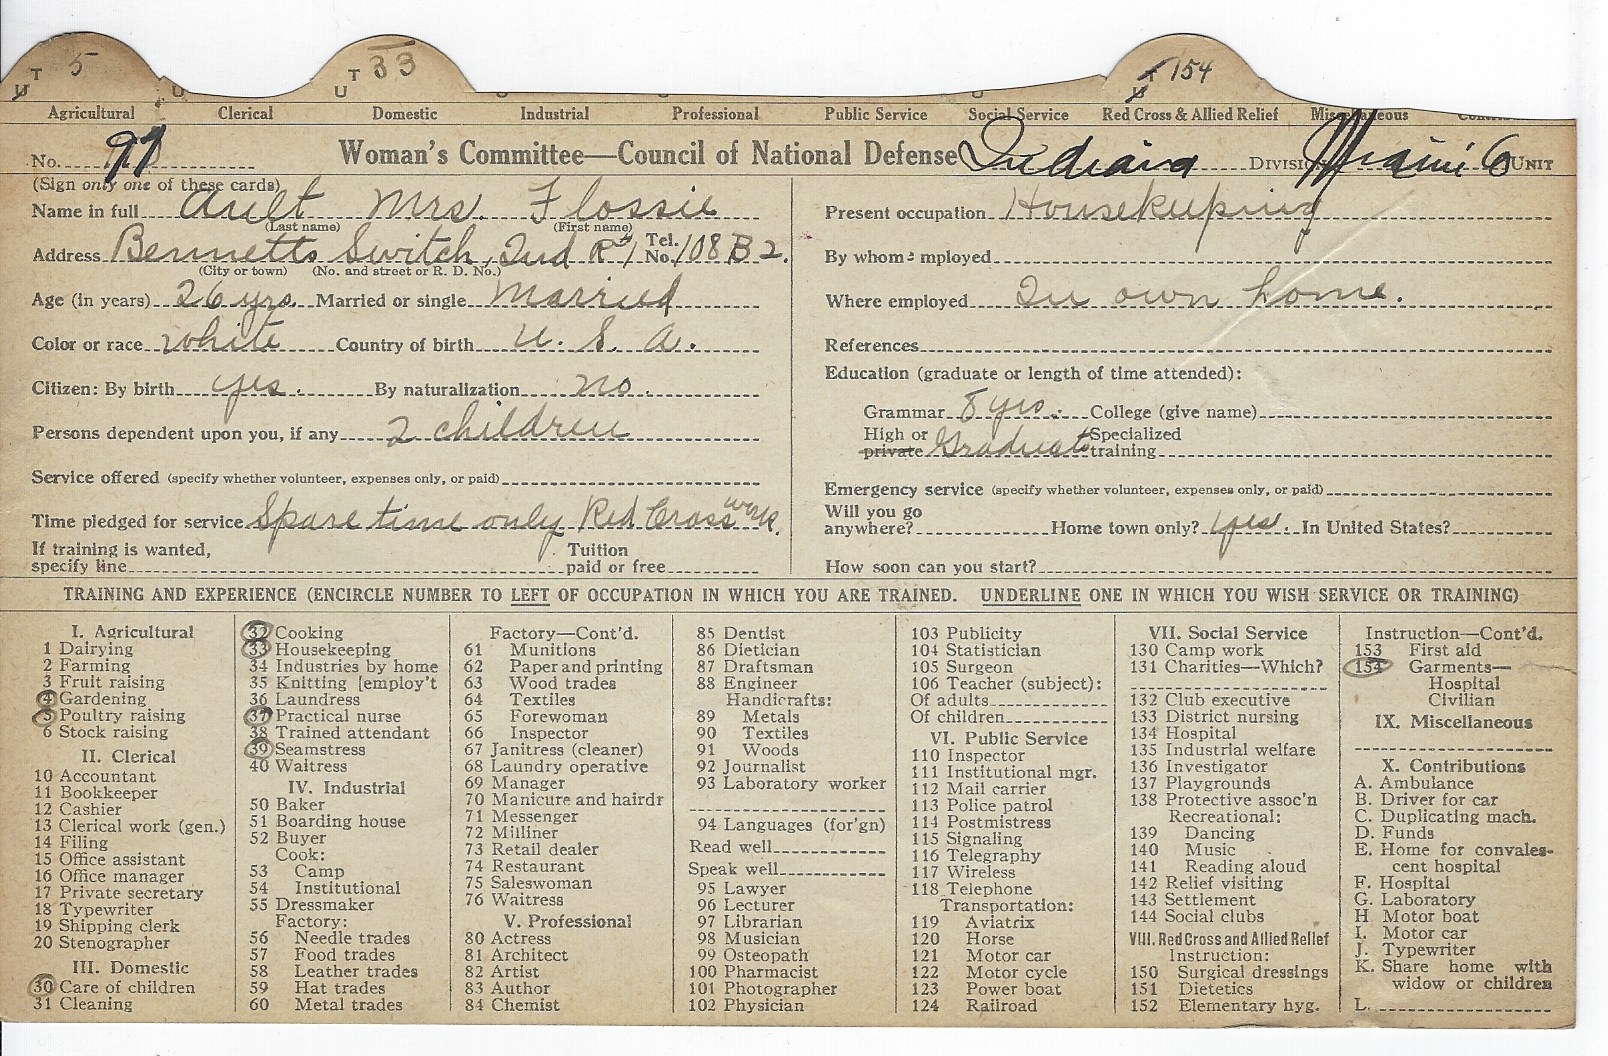 T 5 T 33 T 154
U U U
Agricultural Clerical Domestic Industrial Professional Public Service Social Service Red Cross & Allied Relief Miscellaneous
No. 97 Woman's Committee—Council of National Defense Indiana DIVISION Miami 6 UNIT
(Sign only one of these cards)
Name in full Ault Mrs. Flossie
(Last name) (First name)
Address Bennetts Switch, Ind R#1 Tel. No. 108 B 2.
(City or town) (No. and street or R. D. No.)
Age (in years) 26 yrs. Married or single Married
Color or race white Country of birth U. S. A.
Citizen: By birth yes. By naturalization no.
Persons dependent upon you, if any 2 children
Service offered (specify whether volunteer, expenses only, or paid)
Time pledged for service Spare time only Red Cross work.
If training is wanted, Tuition
specify line paid or free
Present occupation Housekeeping
By whom employed
Where employed In own home.
References
Education (graduate or length of time attended):
Grammar 8 yrs. College (give name)
High or Specialized
private Graduate training
Emergency service (specify whether volunteer, expenses only, or paid)
Will you go
anywhere? Home town only? yes. In United States?
How soon can you start?
TRAINING AND EXPERIENCE (ENCIRCLE NUMBER TO LEFT OF OCCUPATION IN WHICH YOU ARE TRAINED. UNDERLINE ONE IN WHICH YOU WISH SERVICE OR TRAINING)
I. Agricultural
1 Dairying
2 Farming
3 Fruit raising
4 Gardening
5 Poultry raising
6 Stock raising
II. Clerical
10 Accountant
11 Bookkeeper
12 Cashier
13 Clerical work (gen.)
14 Filing
15 Office assistant
16 Office manager
17 Private secretary
18 Typewriter
19 Shipping clerk
20 Stenographer
III. Domestic
30 Care of children
31 Cleaning
32 Cooking
33 Housekeeping
34 Industries by home
35 Knitting [employ't
36 Laundress
37 Practical nurse
38 Trained attendant
39 Seamstress
40 Waitress
IV. Industrial
50 Baker
51 Boarding house
52 Buyer
Cook:
53 Camp
54 Institutional
55 Dressmaker
Factory:
56 Needle trades
57 Food trades
58 Leather trades
59 Hat trades
60 Metal trades
Factory—Cont'd.
61 Munitions
62 Paper and printing
63 Wood trades
64 Textiles
65 Forewoman
66 Inspector
67 Janitress (cleaner)
68 Laundry operative
69 Manager
70 Manicure and hairdr
71 Messenger
72 Milliner
73 Retail dealer
74 Restaurant
75 Saleswoman
76 Waitress
V. Professional
80 Actress
81 Architect
82 Artist
83 Author
84 Chemist
85 Dentist
86 Dietician
87 Draftsman
88 Engineer
Handicrafts:
89 Metals
90 Textiles
91 Woods
92 Journalist
93 Laboratory worker
94 Languages (for'gn)
Read well
Speak well
95 Lawyer
96 Lecturer
97 Librarian
98 Musician
99 Osteopath
100 Pharmacist
101 Photographer
102 Physician
103 Publicity
104 Statistician
105 Surgeon
106 Teacher (subject):
Of adults
Of children
VI. Public Service
110 Inspector
111 Institutional mgr.
112 Mail carrier
113 Police patrol
114 Postmistress
115 Signaling
116 Telegraphy
117 Wireless
118 Telephone
Transportation:
119 Aviatrix
120 Horse
121 Motor car
122 Motor cycle
123 Power boat
124 Railroad
VII. Social Service
130 Camp work
131 Charities—Which?
132 Club executive
133 District nursing
134 Hospital
135 Industrial welfare
136 Investigator
137 Playgrounds
138 Protective assoc'n
Recreational:
139 Dancing
140 Music
141 Reading aloud
142 Relief visiting
143 Settlement
144 Social clubs
VIII. Red Cross and Allied Relief
Instruction:
150 Surgical dressings
151 Dietetics
152 Elementary hyg.
Instruction—Cont'd.
153 First aid
154 Garments—
Hospital
Civilian
IX. Miscellaneous
X. Contributions
A. Ambulance
B. Driver for car
C. Duplicating mach.
D. Funds
E. Home for convales-
cent hospital
F. Hospital
G. Laboratory
H Motor boat
I. Motor car
J. Typewriter
K. Share home with
widow or children
L.